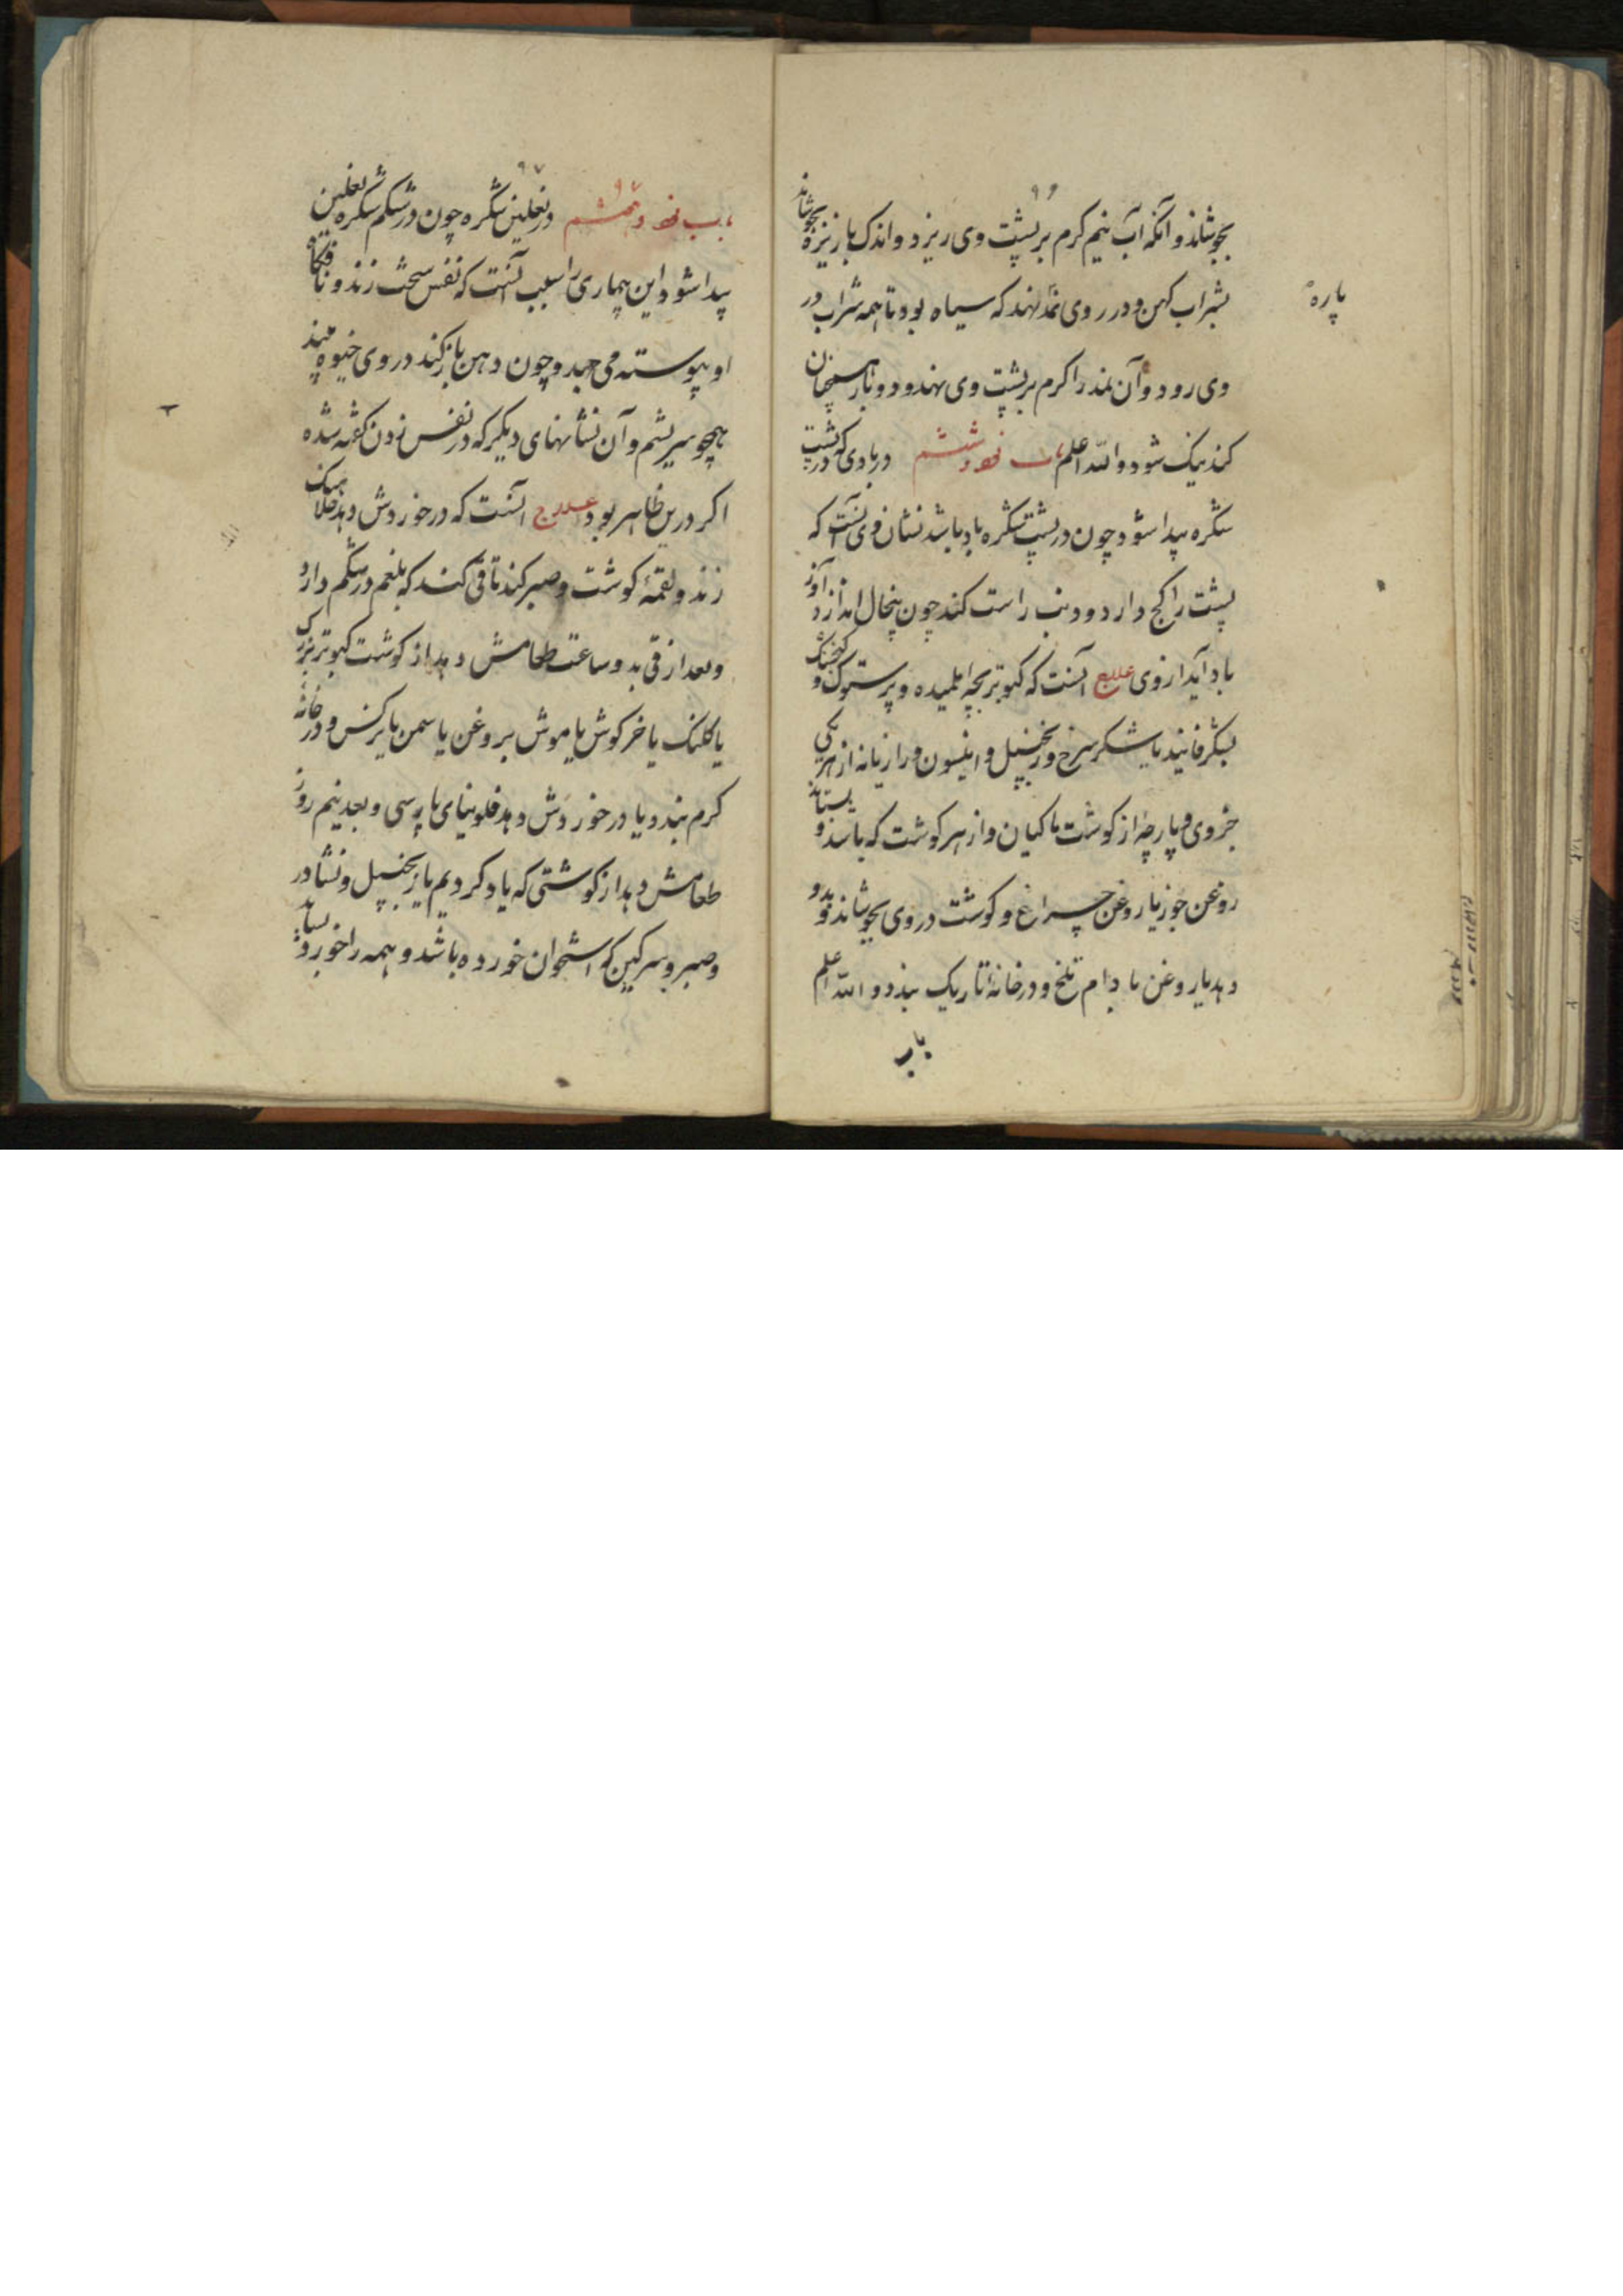 ۹۶
بجوشاند و آنکه آب نیم کرم بر پشت وی ریزد و اندک بارزیزه بجوشاند
بشراب کهن و در روی نمد نهند که سیاه بود تا همه شراب در
پاره
وی رود و آن نمد را کرم بر پشت وی نهند و دو بار همچنان
کند نیک شود والله اعلم باب نود و ششم در بادی که در پشت
شکره پیدا شود چون در پشت شکره باد باشد نشان وی آنست که
پشت را کج دارد و دنب راست کند چون پنجال اندازد آواز
باد آید از وی علاج آنست که کبوتر بچه و پرستوک و کنجشک
بشکر فانیذ یا شکر سرخ و زنجبیل و انیسون و رازیانه از هر یکی
جزوی و پارچه از کوشت ماکیان و از هر کوشت که باشد بستاند و
روغن جوز یا روغن چراغ و کوشت در وی بجوشاند و بدو
دهد یا روغن بادام تلخ و در خانه تاریک بندد والله اعلم
باب
۹۷
باب نود و هفتم در نعلین شکره چون در شکم شکره نعلین
پیدا شود و این بیماری را سبب آنست که نفس سخت زند و
او پیوسته می جهد و چون دهن باز کند در وی خیوه بیند
همچو سریشم و آن نشانهای دیکر که در نفس زدن کفته شده
اکر درین ظاهر بود علاج آنست که در خوردش دهد
زند و لقمه کوشت و صبر کند تا قی کند که بلغم در شکم دارد
و بعد از قی بدو ساعت طعامش دهد از کوشت کبوتر بزرک
یا کلنک یا خرکوش یا موش بروغن یاسمن یا نرکس و در خانه
کرم بندد یا در خوردش دهد فلونیای پارسی و بعد نیم روز
طعامش دهد از کوشتی که یاد کردیم یا زنجبیل و نشادر
و صبر و سرکین که استخوان خورده باشد و همه را خورد بساید